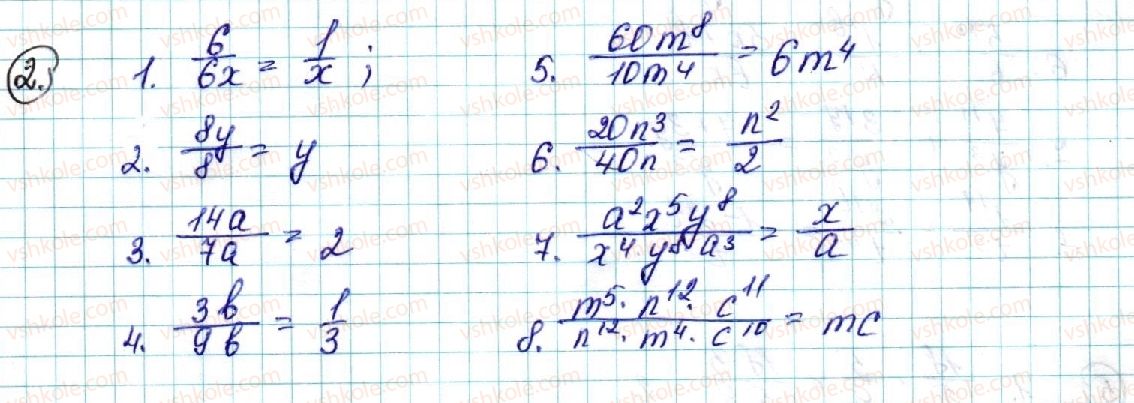 2.) 1. 6/6x = 1/x ;
2. 8y/8 = y
3. 14a/7a = 2
4. 3b/9b = 1/3
5. 60m⁸/10m⁴ = 6m⁴
6. 20n³/40n = n²/2
7. a²x⁵y⁸/x⁴y⁸a³ = x/a
8. m⁵· n¹²· c¹¹/n¹²· m⁴· c¹⁰ = mc
vshkole.com